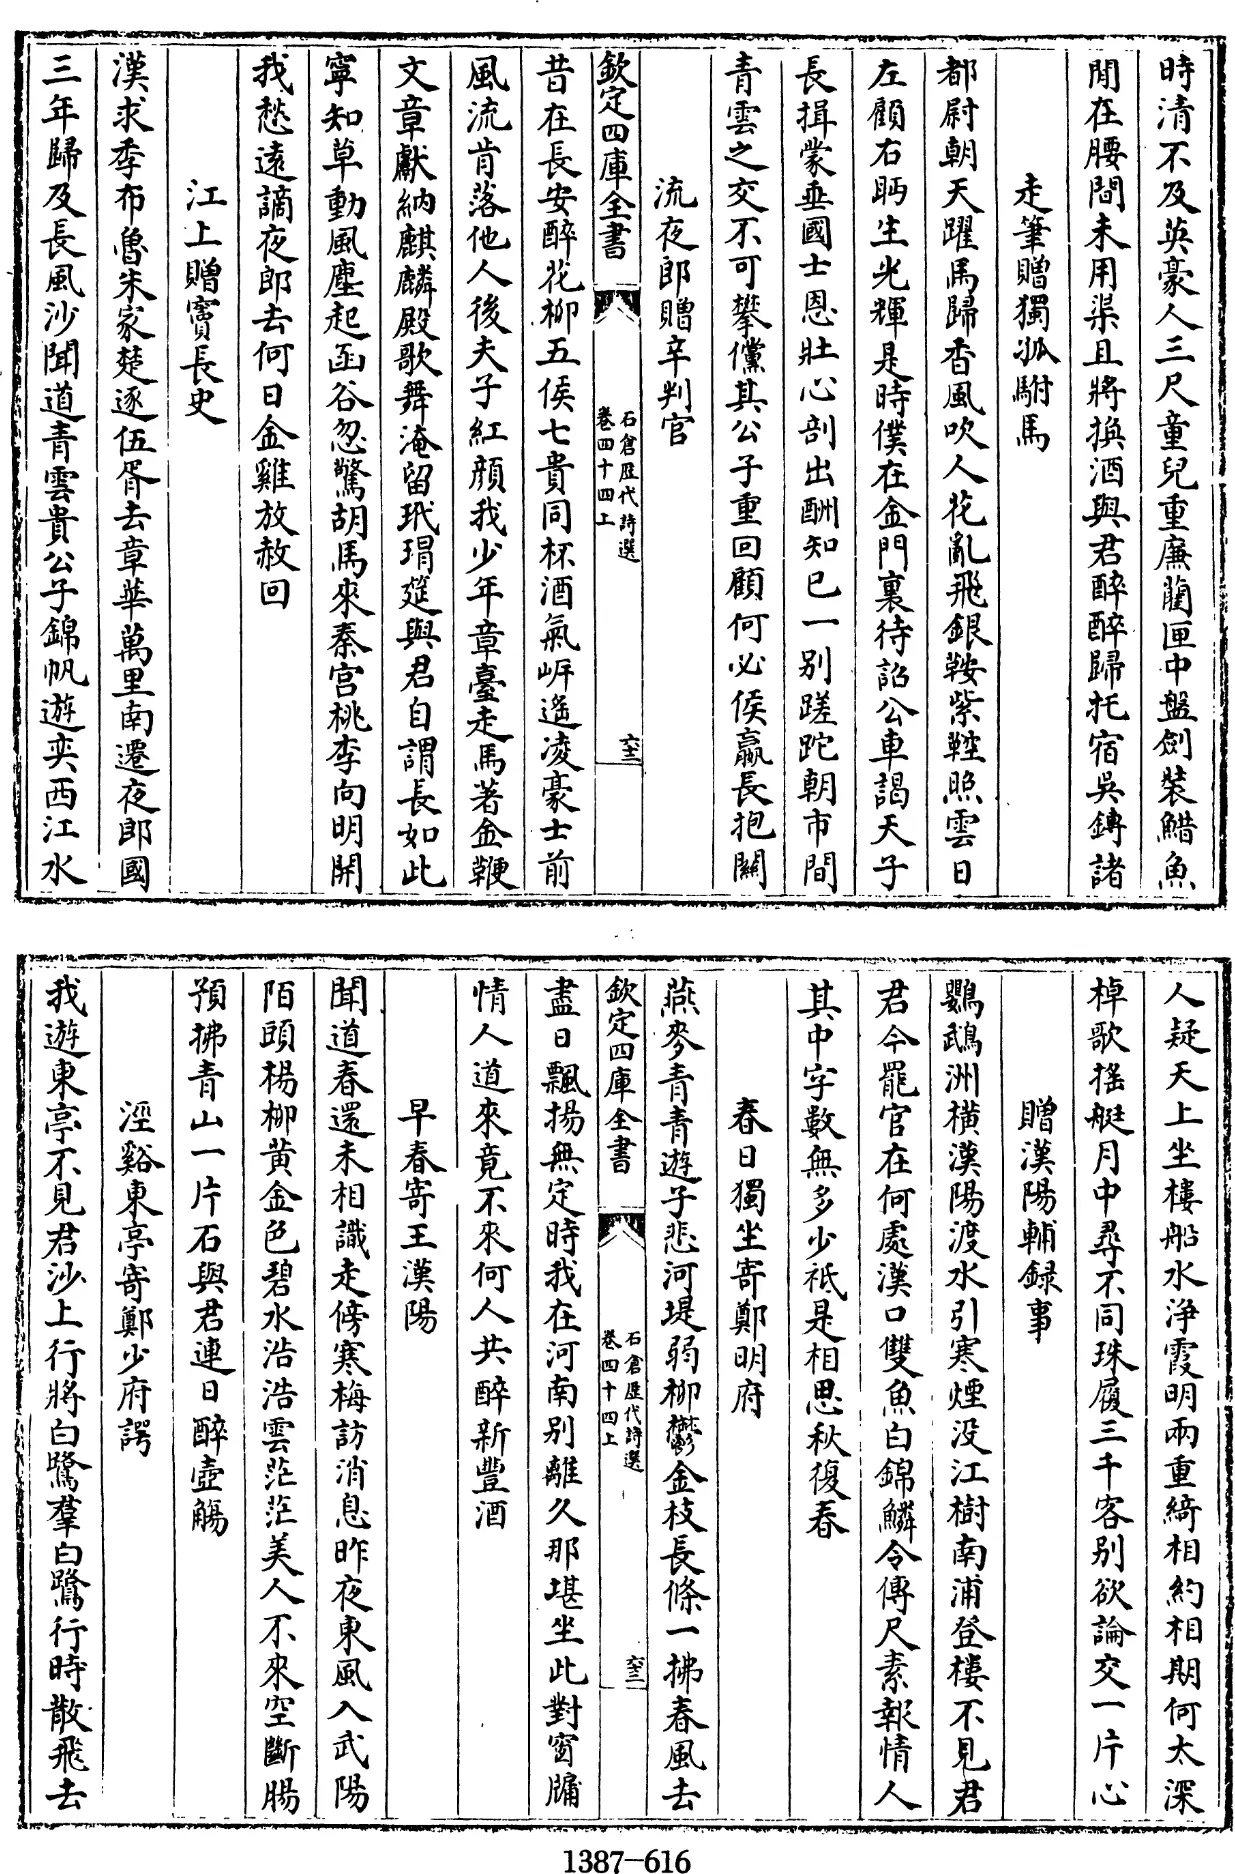 時清不及英豪人三尺童兒重廉藺匣中盤劍裝䱜魚
閒在腰間未用渠且將換酒與君醉醉歸托宿吳鏄諸
走筆贈獨孤駙馬
都尉朝天躍馬歸香風吹人花亂飛銀鞍紫鞚照雲日
左顧右眄生光輝是時僕在金門裏待詔公車謁天子
長揖蒙垂國士恩壯心剖出酬知已一别蹉跎朝市間
青雲之交不可攀儻其公子重回顧何必侯嬴長抱關
流夜郎贈辛判官
欽定四庫全書
石倉歷代詩選
卷四十四上
六十二
昔在長安醉花柳五侯七貴同杯酒氣岸遙凌豪士前
風流肯落他人後夫子紅顔我少年章臺走馬著金鞭
文章獻納麒麟殿歌舞淹留玳瑁筵與君自謂長如此
寧知草動風塵起函谷忽驚胡馬來秦宫桃李向明開
我愁遠謫夜郎去何日金雞放赦回
江上贈竇長史
漢求季布魯朱家楚逐伍胥去章華萬里南遷夜郎國
三年歸及長風沙聞道青雲貴公子錦帆遊奕西江水
人疑天上坐樓船水浄霞明兩重綺相約相期何太深
棹歌摇艇月中尋不同珠履三千客别欲論交一片心
贈漢陽輔録事
鸚鵡洲横漢陽渡水引寒煙没江樹南浦登樓不見君
君今罷官在何處漢口雙魚白錦鱗令傳尺素報情人
其中字數無多少祗是相思秋復春
春日獨坐寄鄭明府
燕麥青青遊子悲河堤弱柳鬱金枝長條一拂春風去
欽定四庫全書
石倉歷代詩選
卷四十四上
六十三
盡日飄揚無定時我在河南别離久那堪坐此對窗牖
情人道來竟不來何人共醉新豐酒
早春寄王漢陽
聞道春還未相識走傍寒梅訪消息昨夜東風入武陽
陌頭楊柳黄金色碧水浩浩雲茫茫美人不來空斷腸
預拂青山一片石與君連日醉壺觴
涇谿東亭寄鄭少府諤
我遊東亭不見君沙上行將白鷺羣白鷺行時散飛去
1387-616